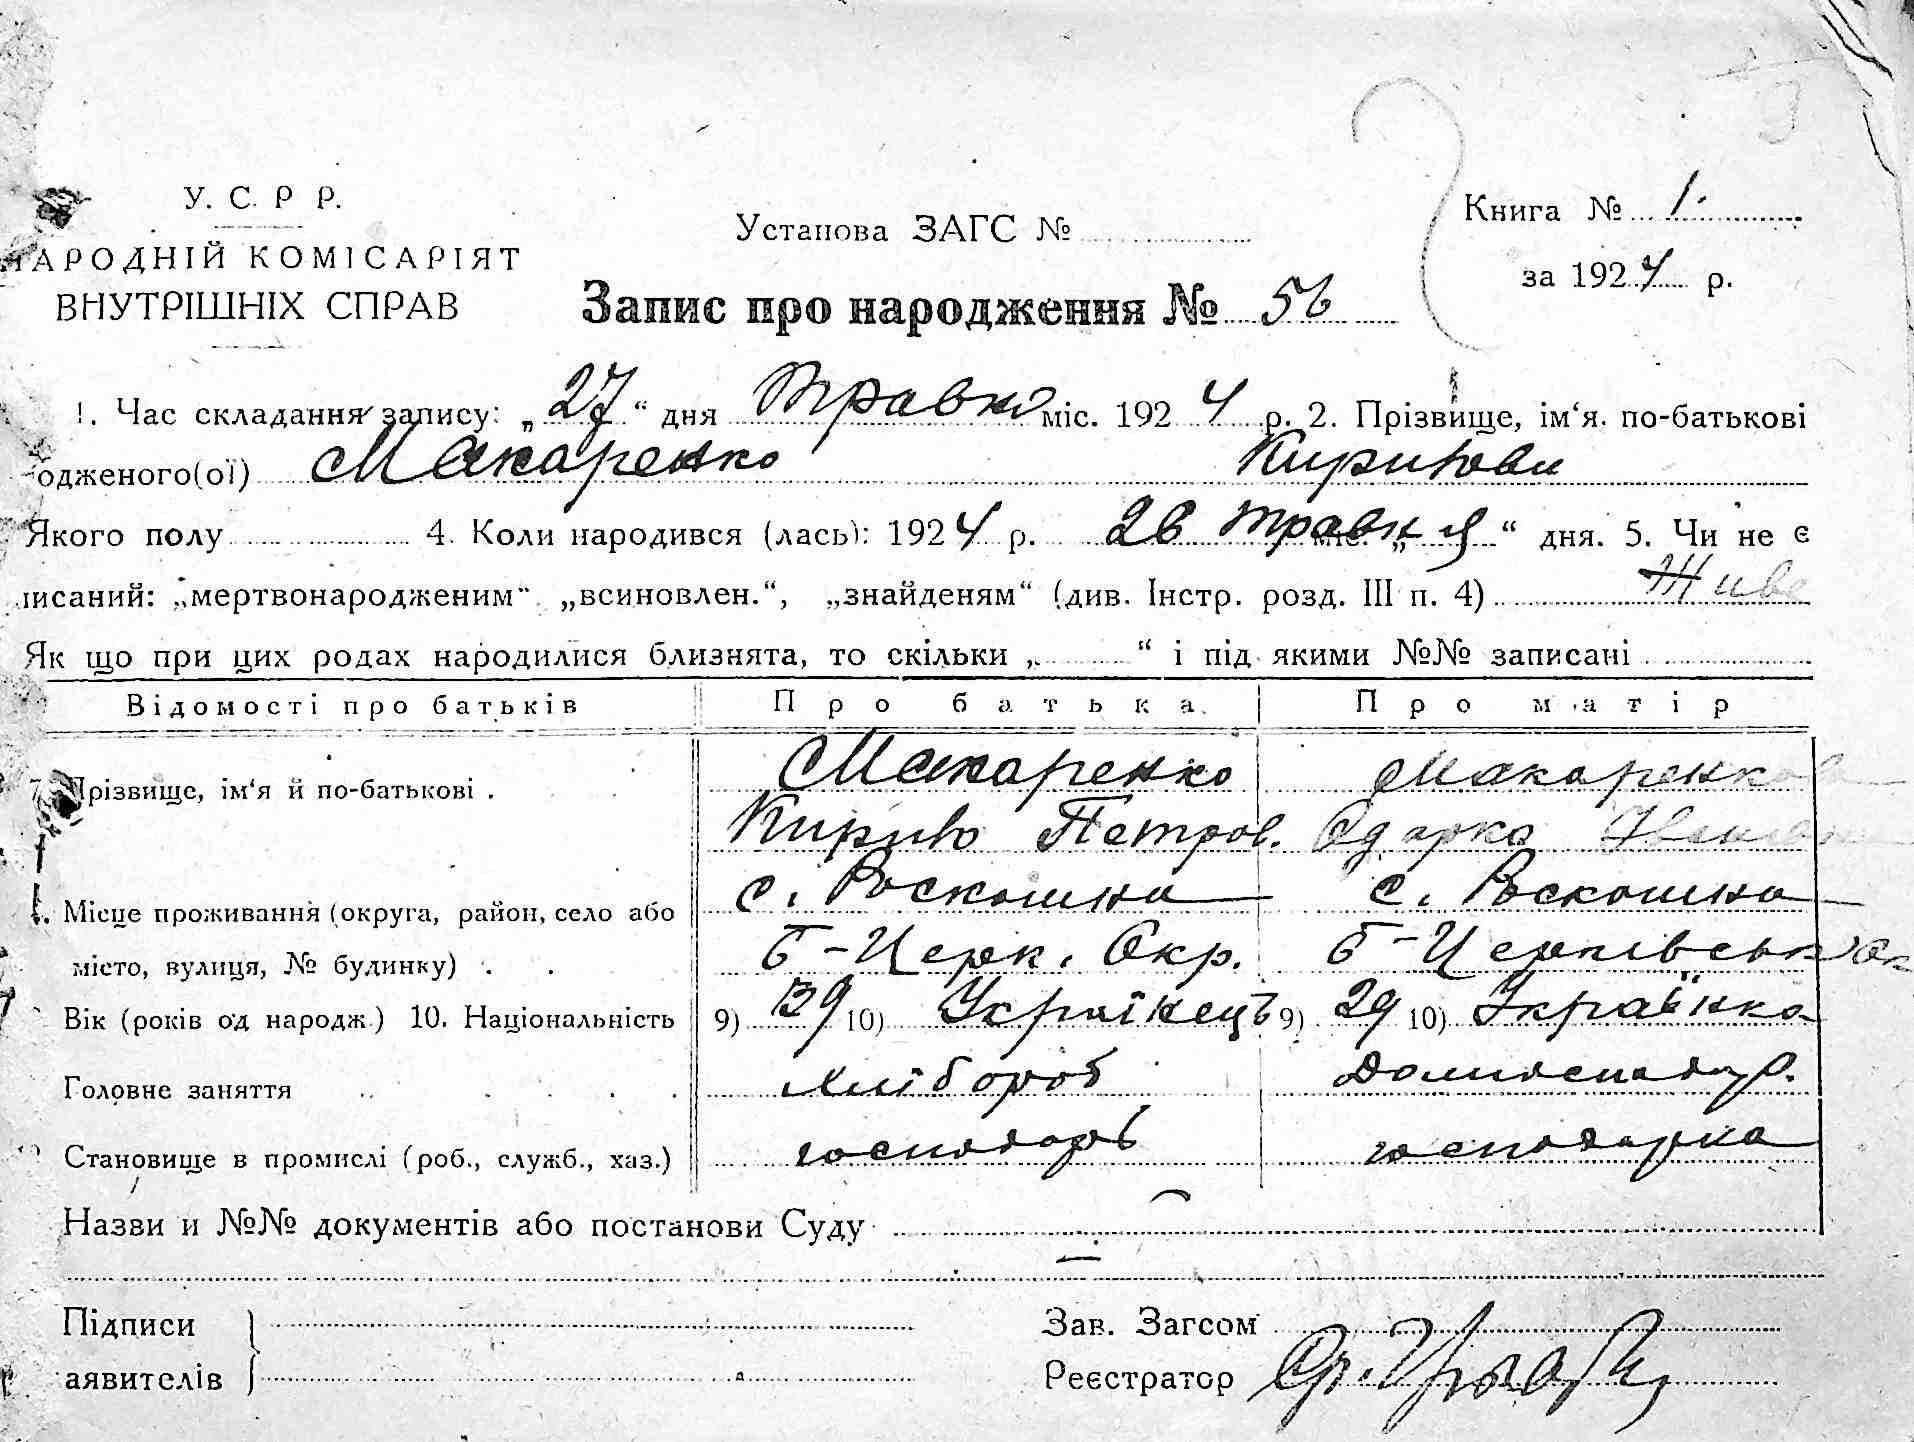 У. С. Р Р.
НАРОДНІЙ КОМІСАРІЯТ
ВНУТРІШНІХ СПРАВ
Установа ЗАГС №
Книга № 1.
за 1924 р.
Запис про народження № 56
1. Час складання запису: „27“ дня Травня міс. 1924 р. 2. Прізвище, ім‘я. по-батькові
одженого(ої) Макаренко
Якого полу 4. Коли народився (лась): 1924 р. 26 травня міс. „ “ дня. 5. Чи не є
писаний: „мертвонародженим“ „всиновлен.“, „знайденям“ (див. Інстр. розд. III п. 4) Живе
Як що при цих родах народилися близнята, то скільки „ “ і під якими №№ записані
Відомості про батьків Про батька Про матір
Прізвище, ім‘я й по-батькові . Макаренко Макаренкова
Кирило Петров. Одарка
Місце проживання (округа, район, село або с. Роскошна с. Роскошна
місто, вулиця, № будинку) . . Б-Церк. Окр. Б-Церківська
Вік (років од народж.) 10. Національність 9) 39 10) Українець 9) 29 10) Українка
Головне заняття Хлібороб Домогосподар.
Становище в промислі (роб., служб., хаз.) господарь господарка
Назви и №№ документів або постанови Суду —
—
Підписи
аявителів
Зав. Загсом
Реєстратор